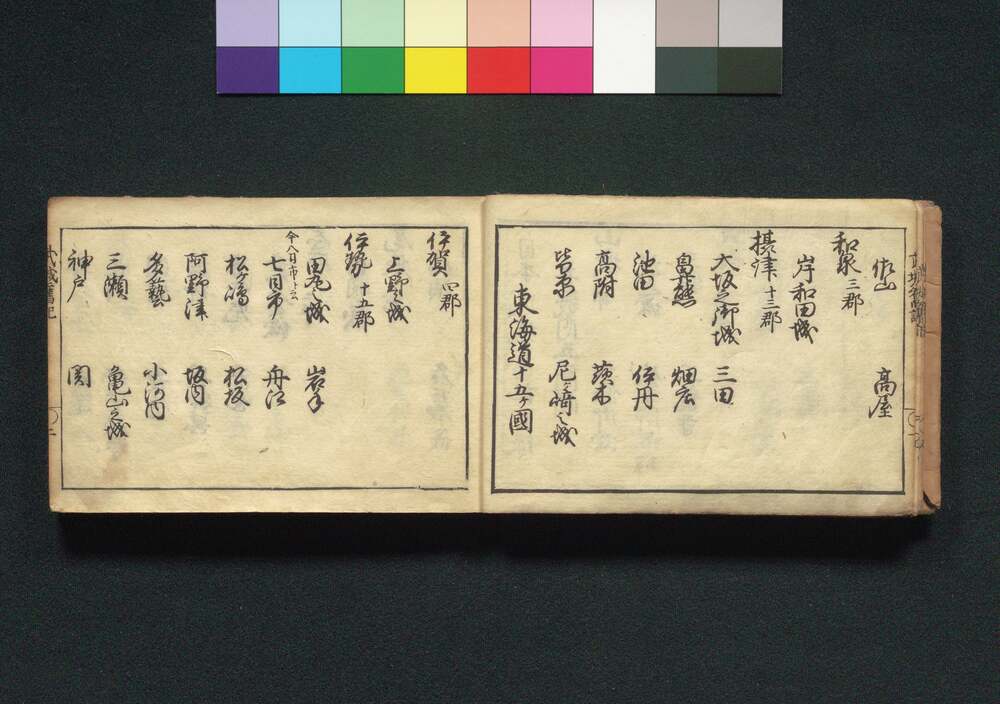 佐山 高屋
和泉 三郡
岸和田城
摂津 十三郡
大坂之御城 三田
畠
池田 伊丹
高附 茨木
尼ヶ崎之城
東海道十五ヶ國
伊賀 四郡
上野城
伊勢 十五郡
田丸城 岩手
今八日市ト云
七日市 舟江
松ヶ嶋 松坂
阿野津 坂内
多藝 小河内
三瀬 亀山之城
神戸 関